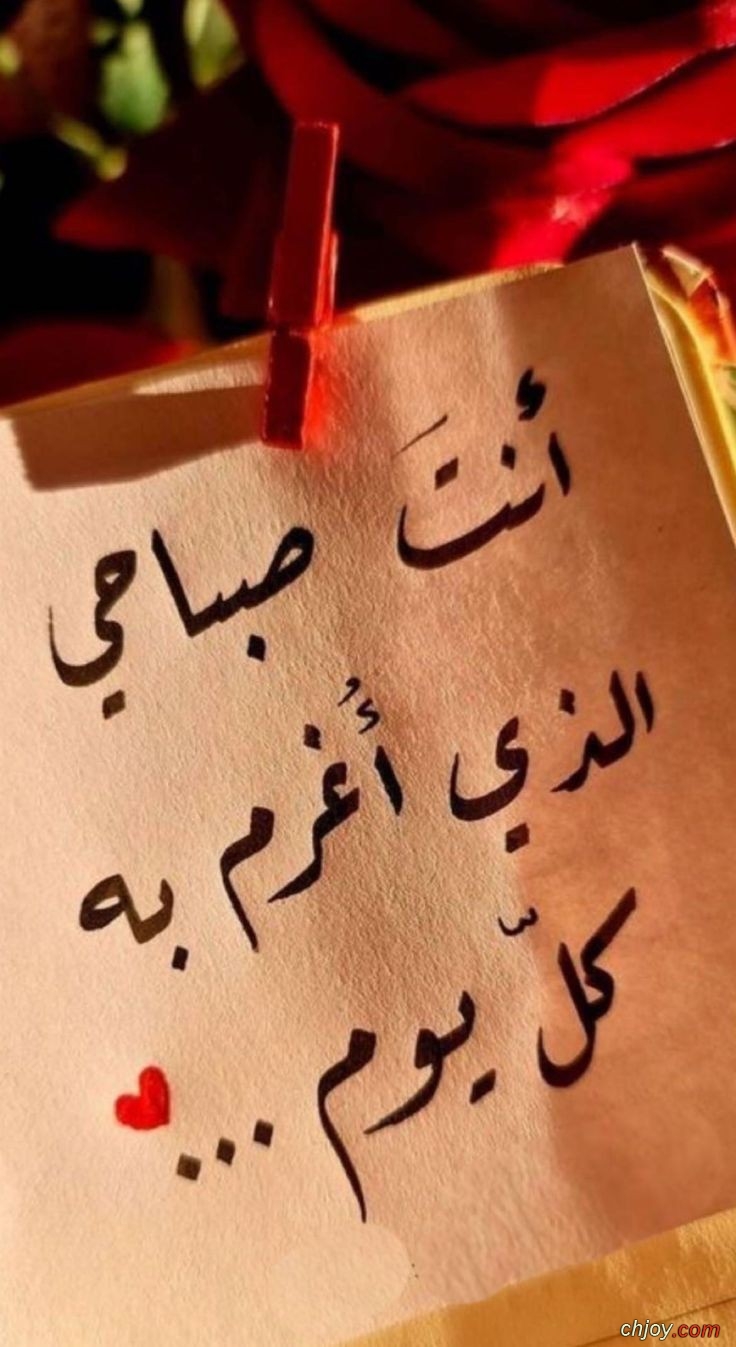 أنتَ صباحي
الذي أُغرم به
كلّ يوم ...
chjoy.com